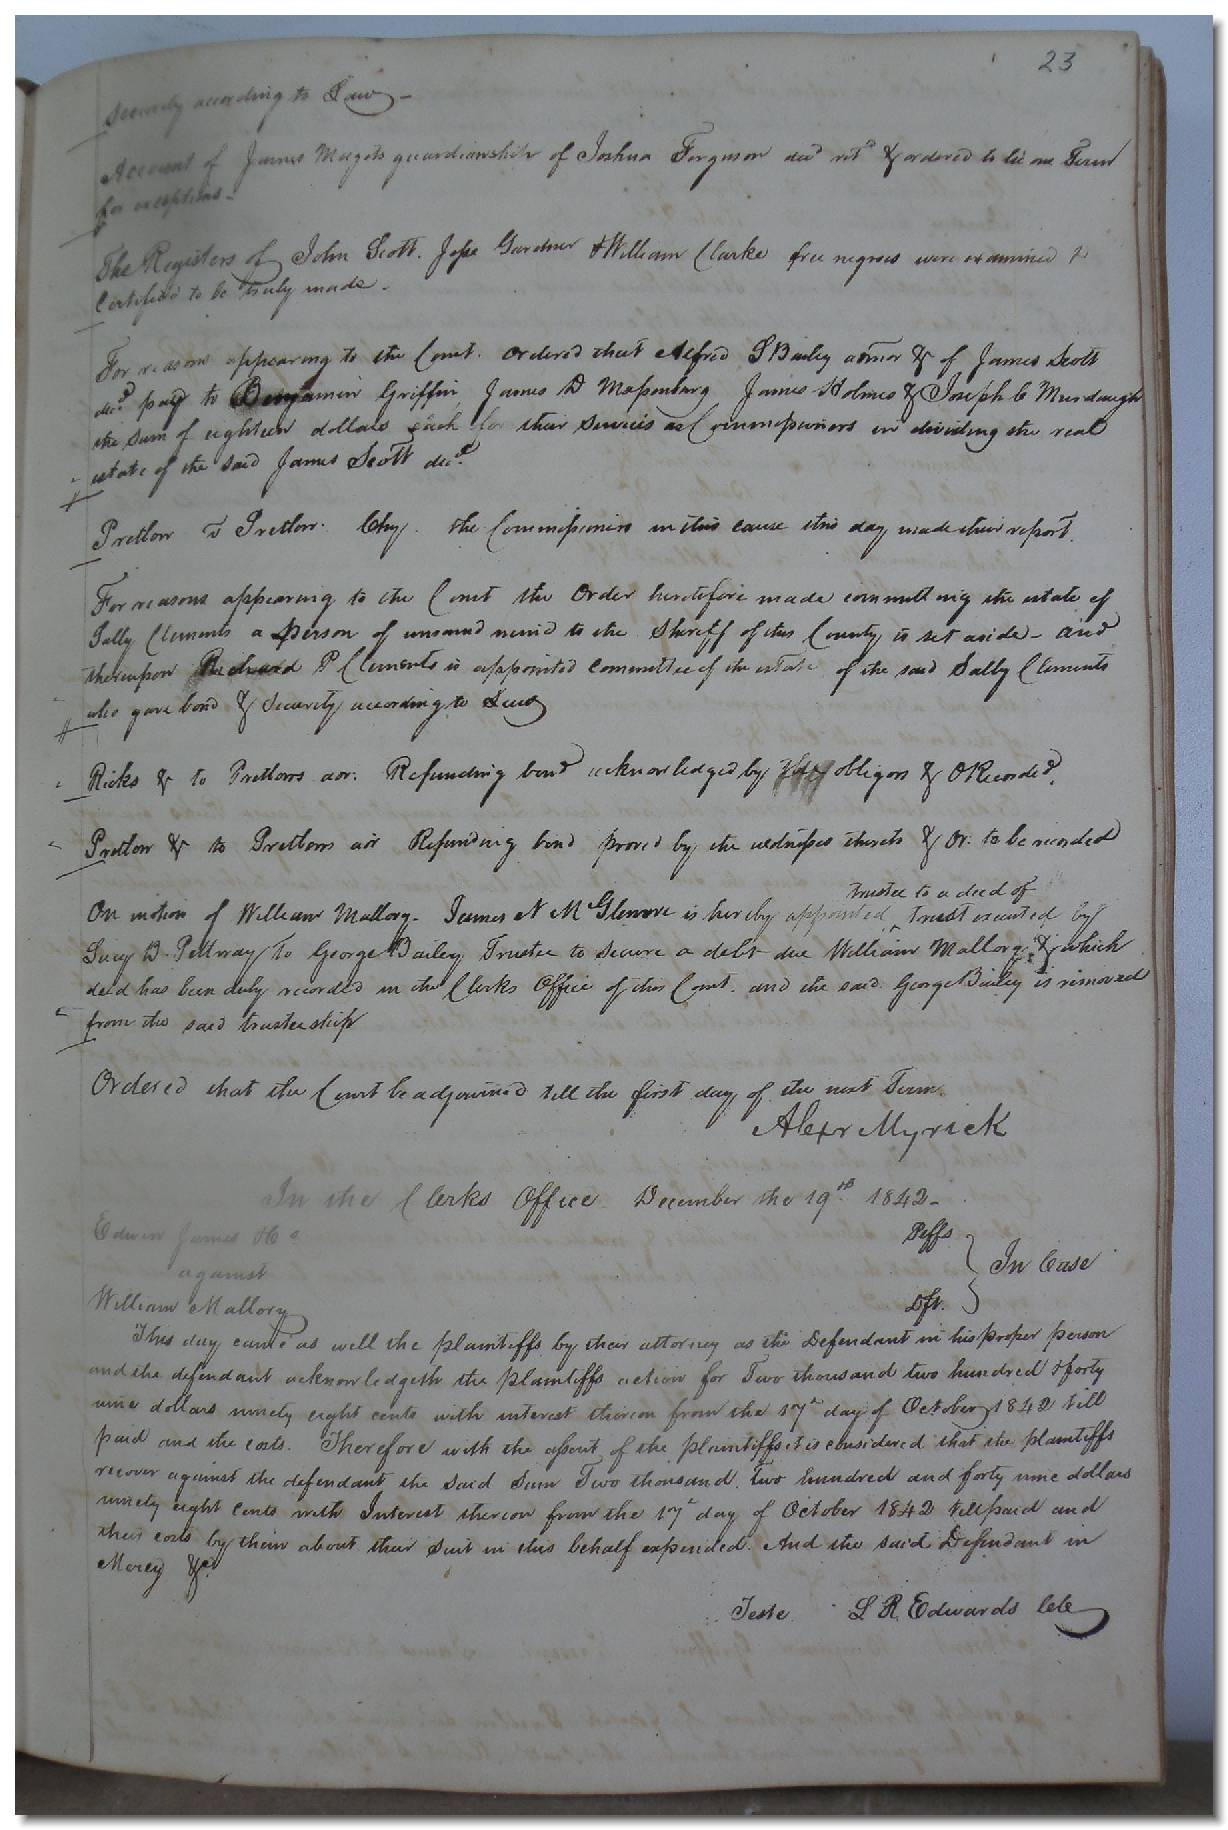 23
Security according to Law -
Account of James Magets guardianship of Joshua Ferguson decd retd & ordered to lie one Term
for exceptions -
The Registers of John Scott. Jesse Gardner & William Clarke free negroes were examined &
Certified to be truly made -
For reasons appearing to the Court. Ordered that Alfred S Bailey admor & of James Scott
decd pay to Benjamin Griffin James D Massenburg James Holmes & Joseph C Murdaugh
the sum of eighteen dollars each for their services as Commissioners in dividing the real
estate of the said James Scott decd.
Pretlow v Pretlow. Chy. the Commissioners in this cause this day made their report.
For reasons appearing to the Court the Order heretofore made committing the estate of
Sally Clements a person of unsound mind to the Sheriff of this County is set aside - and
thereupon Richard P Clements is appointed committee of the estate of the said Sally Clements
who gave bond & Security according to Law
Ricks & to Pretlows aor. Refunding bond acknowledged by obligors & O Recorded.
Pretlow & to Pretlows aor Refunding bond proved by the witnesses thereto & Or. to be recorded
trustee to a deed of
On motion of William Mallory - James N McGlenore is hereby appointed ^ trust executed by
Lucy B. Pettway To George Bailey Trustee to secure a debt due William Mallory & which
deed has been duly recorded in the Clerks Office of this Court. and the said George Bailey is removed
from the said trusteeship
Ordered that the Court be adjourned till the first day of the next Term.
Alexr Myrick
In the Clerks Office December the 19th 1842 -
Edwin James & Co Peffs
against In Case
William Mallory Dft.
This day came as well the plaintiffs by their attorney as the Defendant in his proper person
and the defendant acknowledgeth the plaintiffs action for Two thousand two hundred & forty
nine dollars ninety eight cents with interest thereon from the 17th day of October 1842 till
paid and the costs. Therefore with the assent of the plaintiffs it is considered that the plaintiffs
recover against the defendant the said Sum Two thousand. Two hundred and forty nine dollars
ninety eight Cents with Interest thereon from the 17th day of October 1842 till paid and
their costs by them about their Suit in this behalf expended. And the said Defendant in
Mercy &c.
Teste L R Edwards Clk